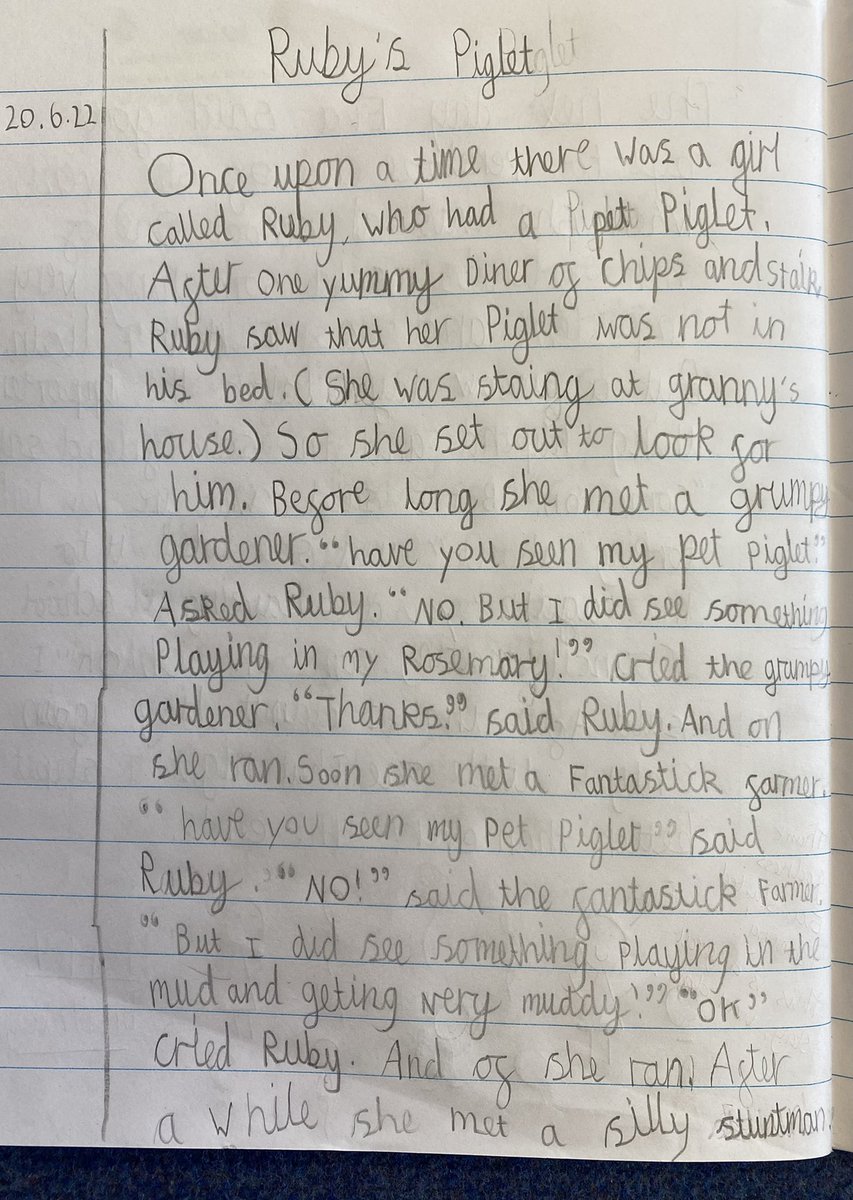 Ruby's Piglet
20.6.22
Once upon a time there was a girl
called Ruby, who had a pet Piglet.
After one yummy Diner of chips and staik
Ruby saw that her Piglet was not in
his bed. (She was staing at granny's
house.) So she set out to look for
him. Before long she met a grumpy
gardener. "have you seen my pet piglet"
Asked Ruby. "NO. But I did see something
Playing in my Rosemary!" cried the grumpy
gardener. "Thanks." said Ruby. And on
she ran. Soon she met a Fantastick farmer.
"have you seen my Pet Piglet" said
Ruby. "NO!" said the fantastick Farmer.
"But I did see something Playing in the
mud and geting very muddy!" "OK"
cried Ruby. And of she ran. After
a while she met a silly stuntman.